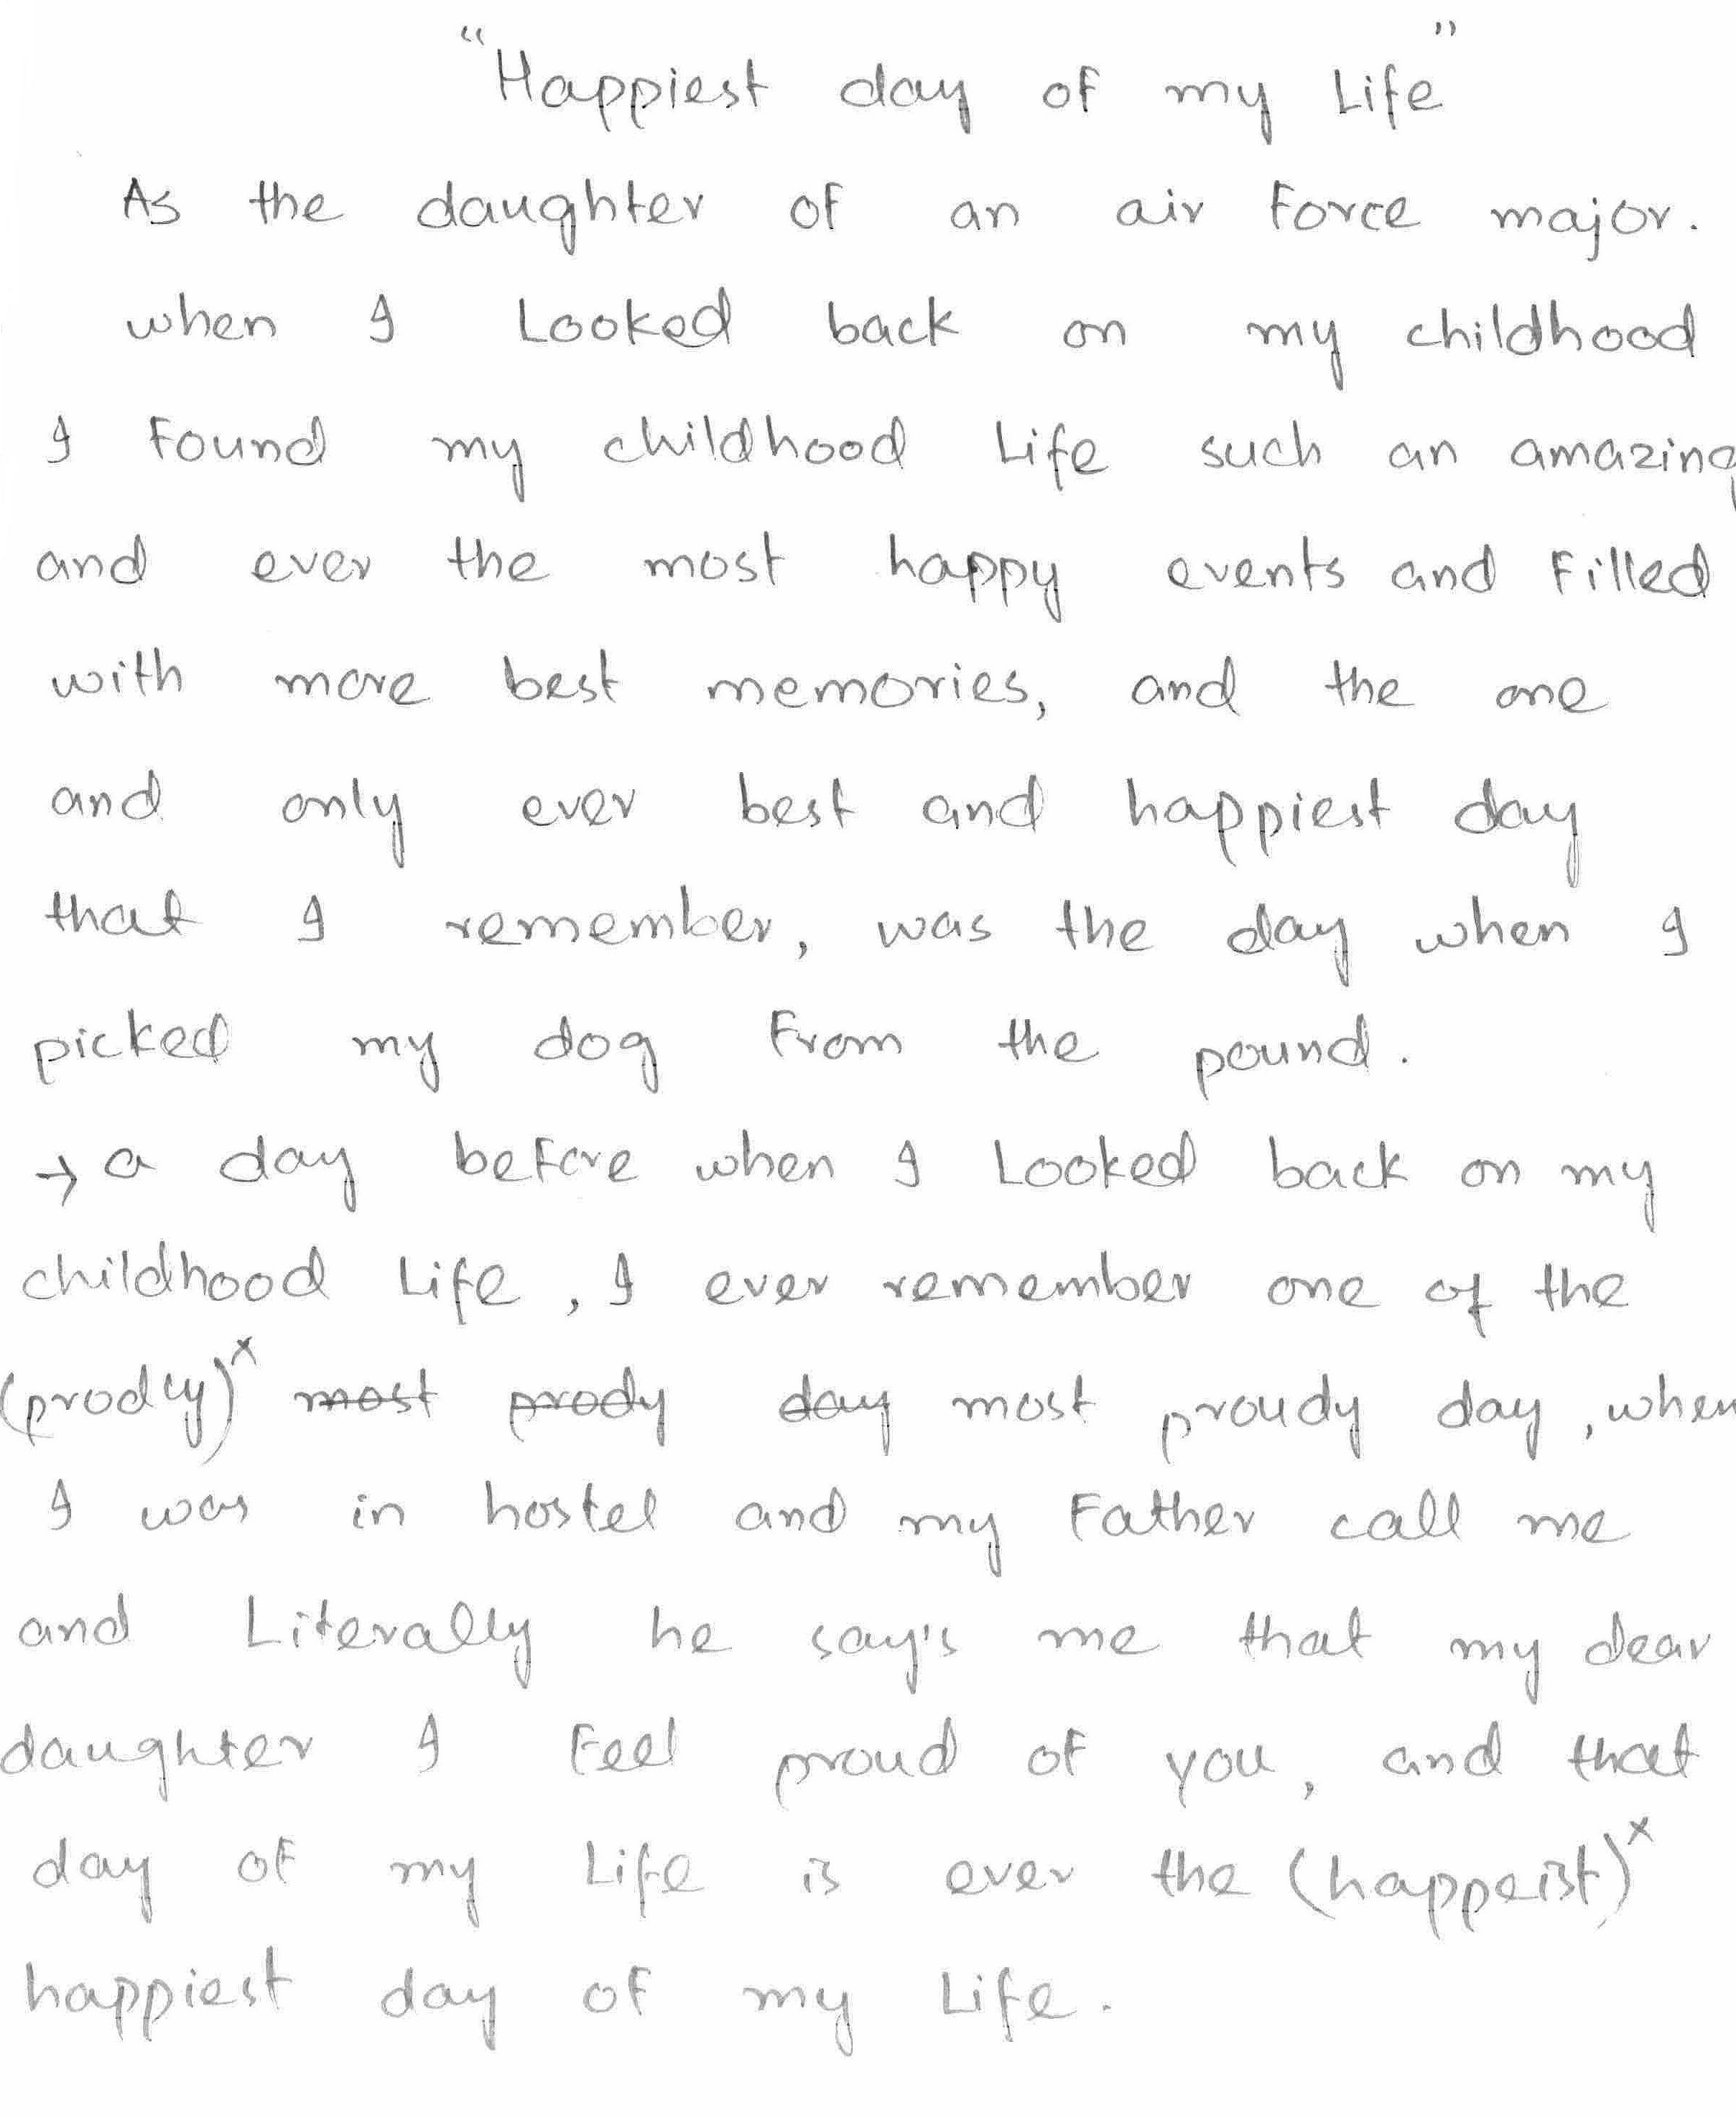 "Happiest day of my Life"
As the daughter of an air Force major.
when I Looked back on my childhood
I Found my childhood Life such an amazing
and ever the most happy events and Filled
with more best memories, and the one
and only ever best and happiest day
that I remember, was the day when I
picked my dog From the pound.
→ a day before when I Looked back on my
childhood Life, I ever remember one of the
(prodly)ˣ most prody day most proudy day, when
I was in hostel and my Father call me
and Literally he say's me that my dear
daughter I Feel proud of you, and that
day of my Life is ever the (happeist)ˣ
happiest day of my Life.